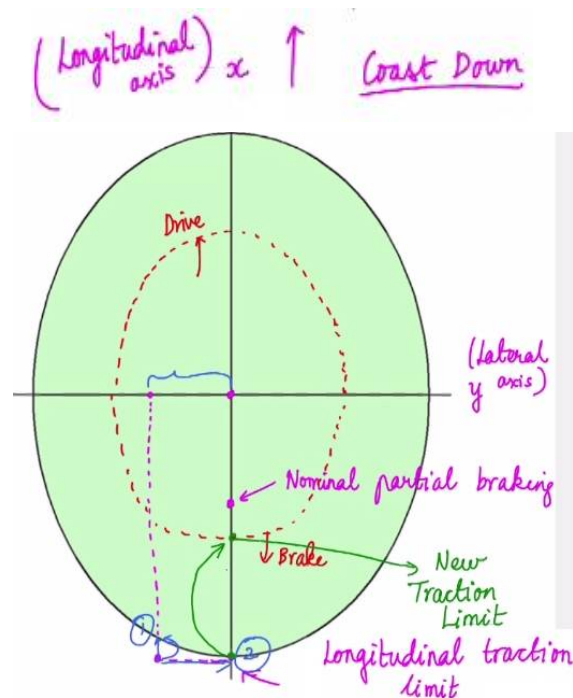 (Longitudinal axis) x ↑ Coast Down
Drive
(Lateral
y axis)
Nominal partial braking
Brake
New
Traction
Limit
① ②
Longitudinal traction
limit